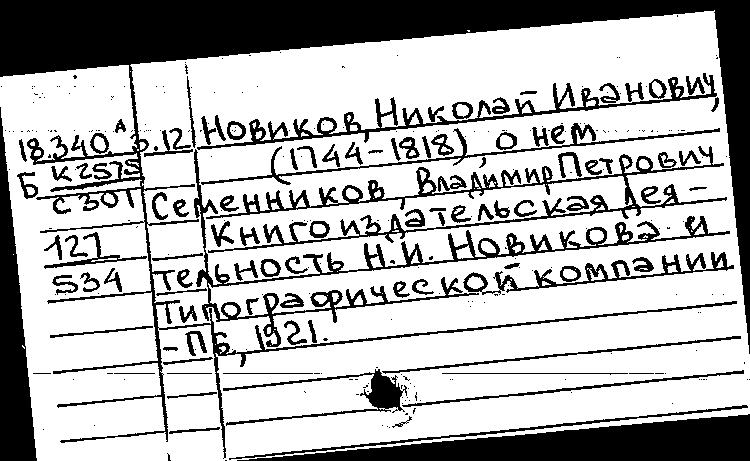 18.340.А 3.12 Новиков, Николай Иванович,
(1744-1818), о нем
Б К2575
С301 Семенников, Владимир Петрович
Книгоиздательская дея-
127
534 тельность Н.И. Новикова и
Типографической компании
-ПБ, 1921.